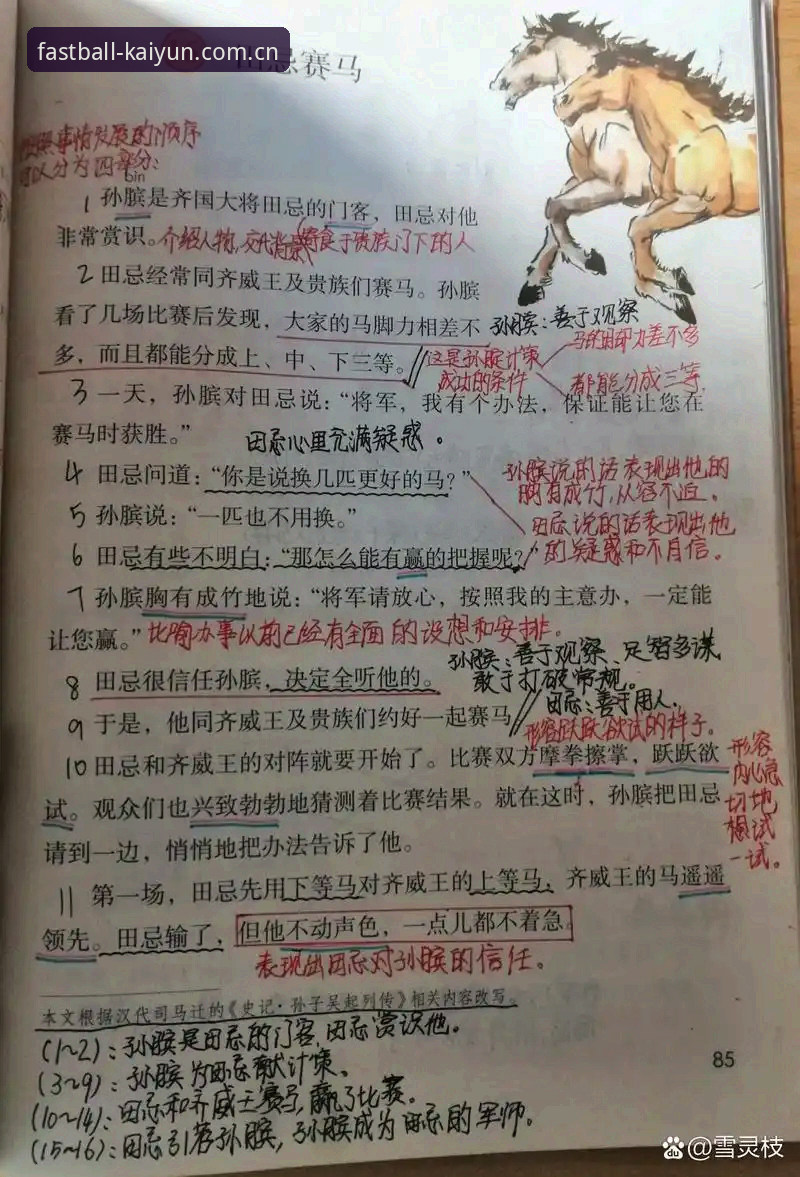 fastball-kaiyun.com.cn
田忌赛马
按照事情发展的顺序
可以分为四部分:
bìn
1 孙膑是齐国大将田忌的门客，田忌对他
非常赏识。介绍人物,交代背景(寄食于贵族门下的人
2 田忌经常同齐威王及贵族们赛马。孙膑
看了几场比赛后发现，大家的马脚力相差不
孙膑:善于观察
多，而且都能分成上、中、下三等。
这是孙膑计策
成功的条件
马的脚力差不多
都能分成三等,
3 一天，孙膑对田忌说：“将军，我有个办法，保证能让您在
赛马时获胜。”
田忌心里充满疑惑。
4 田忌问道：“你是说换几匹更好的马？”
孙膑说的话表现出他的
胸有成竹,从容不迫。
5 孙膑说：“一匹也不用换。”
田忌说的话表现出他
的疑惑和不自信。
6 田忌有些不明白：“那怎么能有赢的把握呢？”
7 孙膑胸有成竹地说：“将军请放心，按照我的主意办，一定能
让您赢。”比喻办事以前已经有全面的设想和安排。
孙膑:善于观察、足智多谋
敢于打破常规。
8 田忌很信任孙膑，决定全听他的。
田忌:善于用人.
9 于是，他同齐威王及贵族们约好一起赛马
形容跃跃欲试的样子.
10 田忌和齐威王的对阵就要开始了。比赛双方摩拳擦掌，跃跃欲
试。观众们也兴致勃勃地猜测着比赛结果。就在这时，孙膑把田忌
请到一边，悄悄地把办法告诉了他。
形容
内心急
切地
想试
一试。
11 第一场，田忌先用下等马对齐威王的上等马，齐威王的马遥遥
领先。田忌输了，但他不动声色，一点儿都不着急。
表现出田忌对孙膑的信任。
本文根据汉代司马迁的《史记·孙子吴起列传》相关内容改写。
(1~2):孙膑是田忌的门客,田忌赏识他。
(3~9):孙膑为田忌献计策。
(10~14):田忌和齐威王赛马,赢了比赛。
(15~16):田忌引荐孙膑,孙膑成为田忌的军师.
85
@雪灵枝